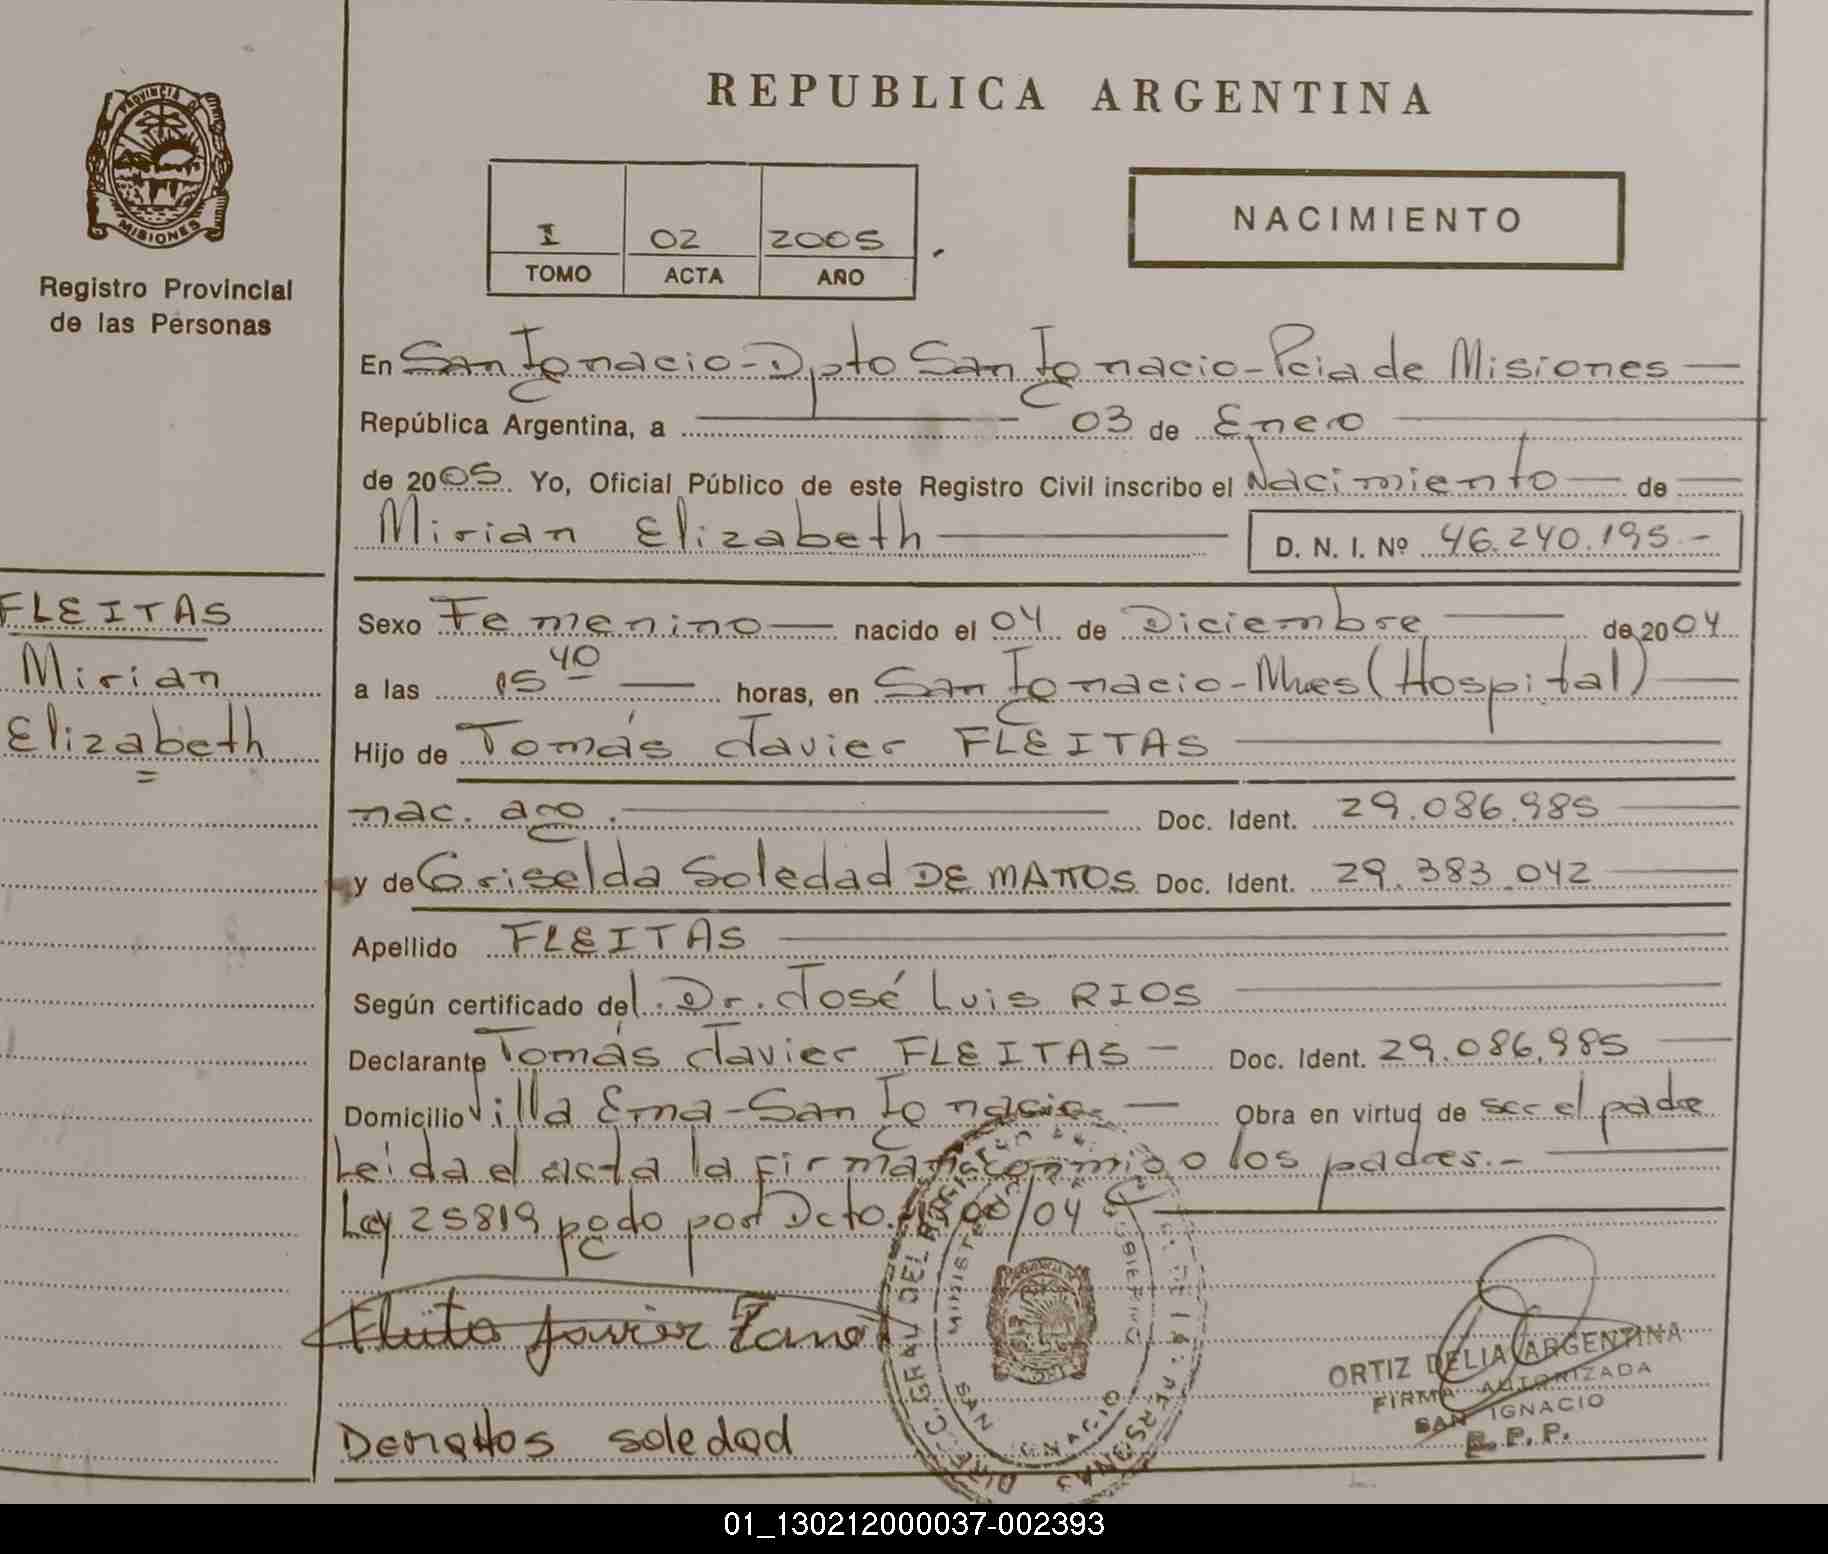 PROVINCIA DE
MISIONES
Registro Provincial
de las Personas
REPUBLICA ARGENTINA
I 02 2005
TOMO ACTA AÑO
NACIMIENTO
En San Ignacio - Dpto San Ignacio - Pcia de Misiones
República Argentina, a 03 de Enero
de 2005. Yo, Oficial Público de este Registro Civil inscribo el Nacimiento de
Mirian Elizabeth D. N. I. Nº 46.240.195.-
FLEITAS
Mirian
Elizabeth
Sexo Femenino nacido el 04 de Diciembre de 2004
a las 15 40 horas, en San Ignacio - Mnes (Hospital)
Hijo de Tomás Javier FLEITAS
nac. arg. Doc. Ident. 29.086.985
y de Griselda Soledad DE MATTOS Doc. Ident. 29.383.042
Apellido FLEITAS
Según certificado del Dr. José Luis RIOS
Declarante Tomás Javier FLEITAS - Doc. Ident. 29.086.985
Domicilio Villa Ema - San Ignacio - Obra en virtud de ser el padre
Leída el acta la firman conmigo los padres.-
Ley 25819 pgdo por Dcto. /04
Javier
Demattos soledad
ORTIZ DELIA ARGENTINA
FIRMA AUTORIZADA
SAN IGNACIO
R. P. P.
01_130212000037-002393